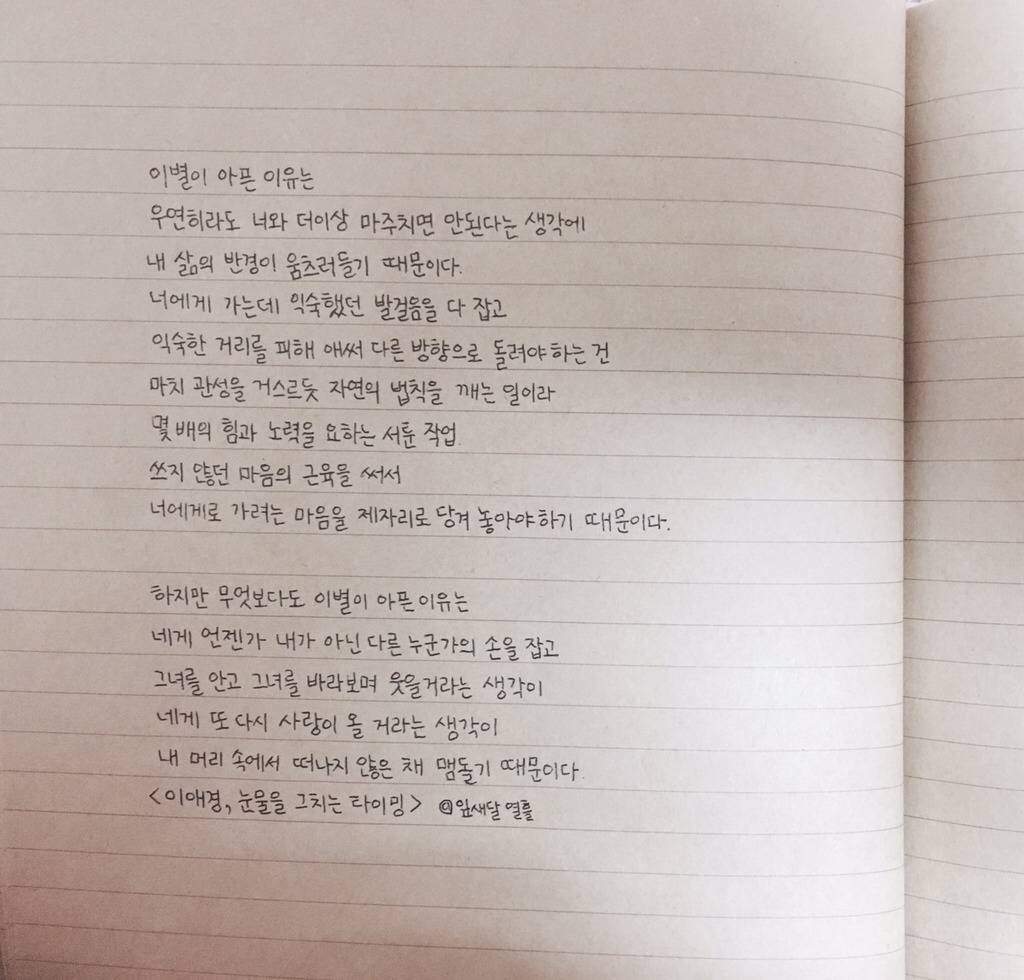 이별이 아픈 이유는
우연히라도 너와 더이상 마주치면 안된다는 생각에
내 삶의 반경이 움츠러들기 때문이다.
너에게 가는데 익숙했던 발걸음을 다 잡고
익숙한 거리를 피해 애써 다른 방향으로 돌려야하는 건
마치 관성을 거스르듯 자연의 법칙을 깨는 일이라
몇 배의 힘과 노력을 요하는 서툰 작업.
쓰지 않던 마음의 근육을 써서
너에게로 가려는 마음을 제자리로 당겨 놓아야하기 때문이다.
하지만 무엇보다도 이별이 아픈 이유는
네게 언젠가 내가 아닌 다른 누군가의 손을 잡고
그녀를 안고 그녀를 바라보며 웃을거라는 생각이
네게 또 다시 사랑이 올 거라는 생각이
내 머리 속에서 떠나지 않은 채 맴돌기 때문이다.
<이애경, 눈물을 그치는 타이밍> @잎새달 열흘